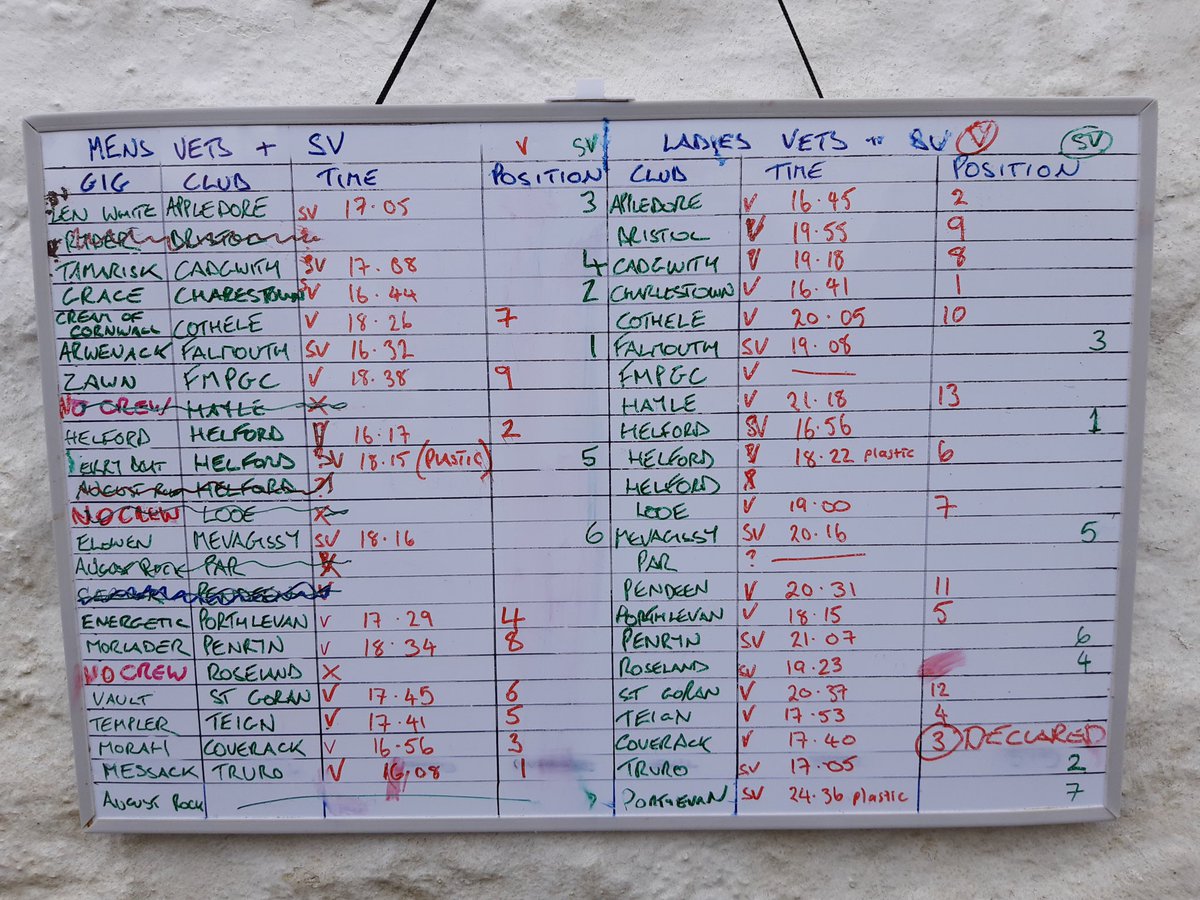 MENS VETS + SV V SV LADIES VETS + SV V SV
GIG CLUB TIME POSITION CLUB TIME POSITION
LEN WHITE APPLEDORE SV 17.05 3 APPLEDORE V 16.45 2
RYDER BRISTOL BRISTOL V 19.55 9
TAMARISK CADGWITH SV 17.88 4 CADGWITH V 19.18 8
GRACE CHARESTOWN SV 16.44 2 CHARLESTOWN V 16.41 1
CREAM OF CORNWALL COTHELE V 18.26 7 COTHELE V 20.05 10
ARWENACK FALMOUTH SV 16.32 1 FALMOUTH SV 19.08 3
ZAWN FMPGC V 18.38 9 FMPGC V
NO CREW HAYLE X HAYLE V 21.18 13
HELFORD HELFORD V 16.17 2 HELFORD SV 16.56 1
HELFORD SV 18.15 (PLASTIC) 5 HELFORD V 18.22 plastic 6
HELFORD HELFORD
NO CREW LOOE X LOOE V 19.00 7
ELOWEN MEVAGISSY SV 18.16 6 MEVAGISSY SV 20.16 5
AUGUST ROCK PAR X PAR ?
PENDEEN V PENDEEN V 20.31 11
ENERGETIC PORTHLEVAN V 17.29 4 PORTHLEVAN V 18.15 5
MORLADER PENRYN V 18.34 8 PENRYN SV 21.07 6
NO CREW ROSELAND X ROSELAND SV 19.23 4
VAULT ST GORAN V 17.45 6 ST GORAN V 20.37 12
TEMPLER TEIGN V 17.41 5 TEIGN V 17.53 4
MORAH COVERACK V 16.56 3 COVERACK V 17.40 3 DECLARED
MESSACK TRURO V 16.08 1 TRURO SV 17.05 2
AUGUST ROCK PORTHLEVAN SV 24.36 plastic 7